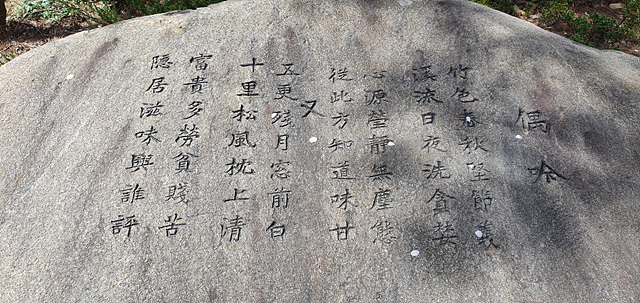 偶吟
竹色春秋堅節義
溪流日夜洗貪婪
心源瑩靜無塵態
從此方知道味甘
又
五更残月窓前白
十里松風枕上清
富貴多勞貧賤苦
隠居滋味與誰評